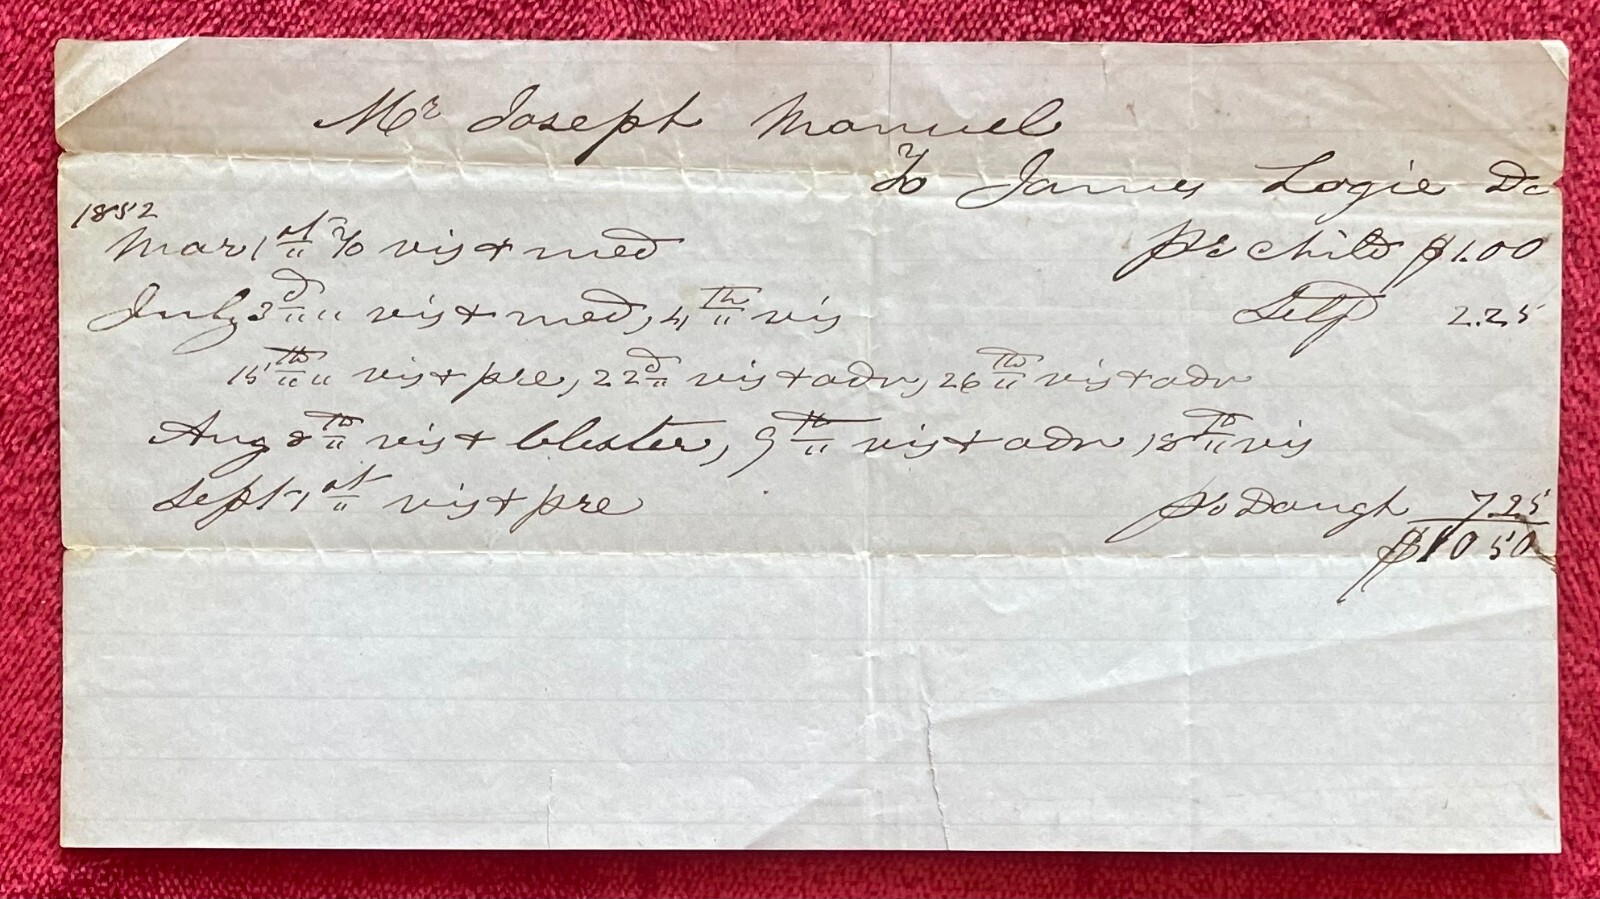 Mr Joseph Manuel
To James Logie Dr
1852
Mar 1st " To vis + med pr child $1.00
July 3d " " vis + med, 4th " vis Self 2.25
15th " " vis + pre, 22d " vis + adv, 26th " vis + adv
Aug 8th " vis + blister, 9th " vis + adv, 18th " vis
Sept 1st " vis + pre pr Daugh 7.25
$10 50